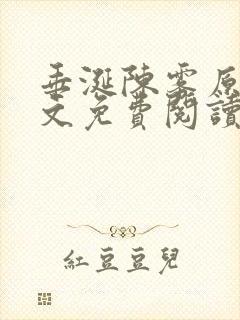 垂涎陳雾原
文免費閱讀
紅豆豆兒